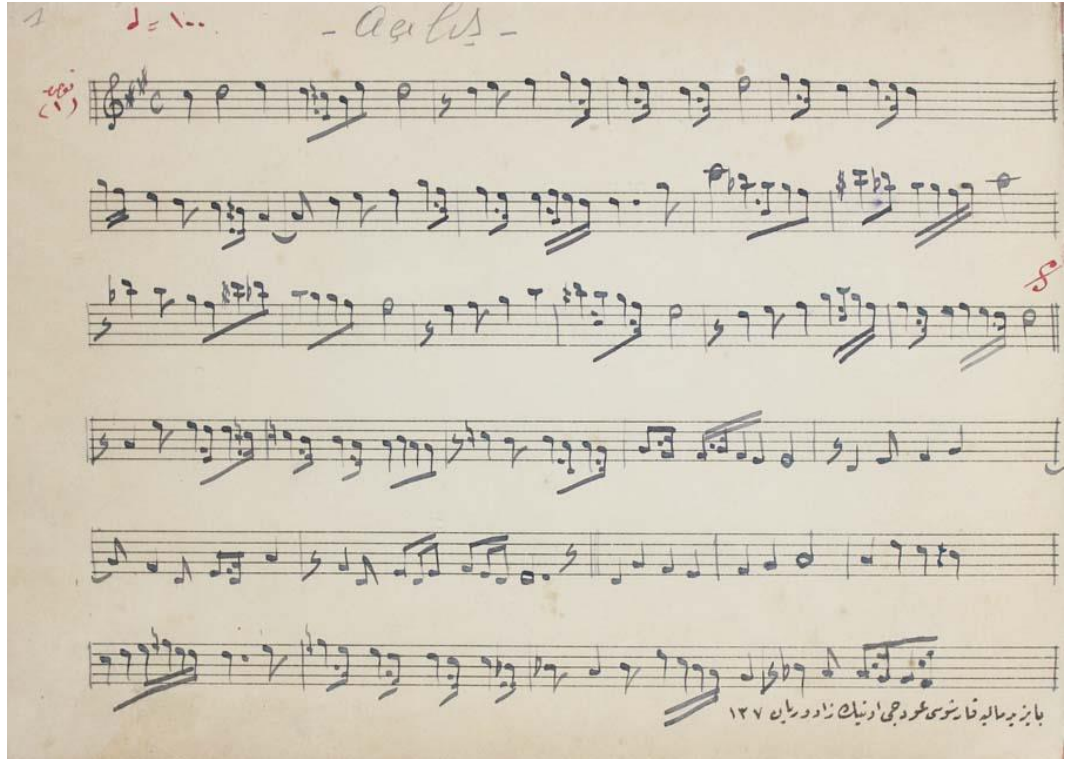 1
♩ = ١٠٠
- Açılış -
(١)
بايزيد ماليه قارشوسى عودجى اونيك زادوريان ١٣٧